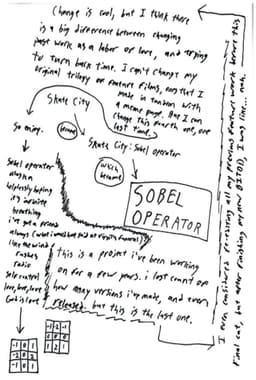 Change is cool, but I think there
is a big difference between changing
past work as a labor of love, and trying
to turn back time. I can't change my
original trilogy of feature films, ones that I
made in tandem with
a meme page. But I can
change this fourth one, one
last time.
Skate City
So anyway.
became
Skate City: Sobel operator
which
became
SOBEL
OPERATOR
Sobel operator
always
helplessly boring
it's infinite
breathing
i've got a friend
always
like the wind
rushes
radio
self control
love, love, love
God is love
this is a project i've been working
on for a few years. i lost count on
how many versions i've made, and even
released, but this is the last one.
-1 0 1
-2 0 2
-1 0 1
-1 -2 -1
0 0 0
1 2 1
I even considered re-editing all my previous feature work before this
final cut, but after finishing I was like... nah.